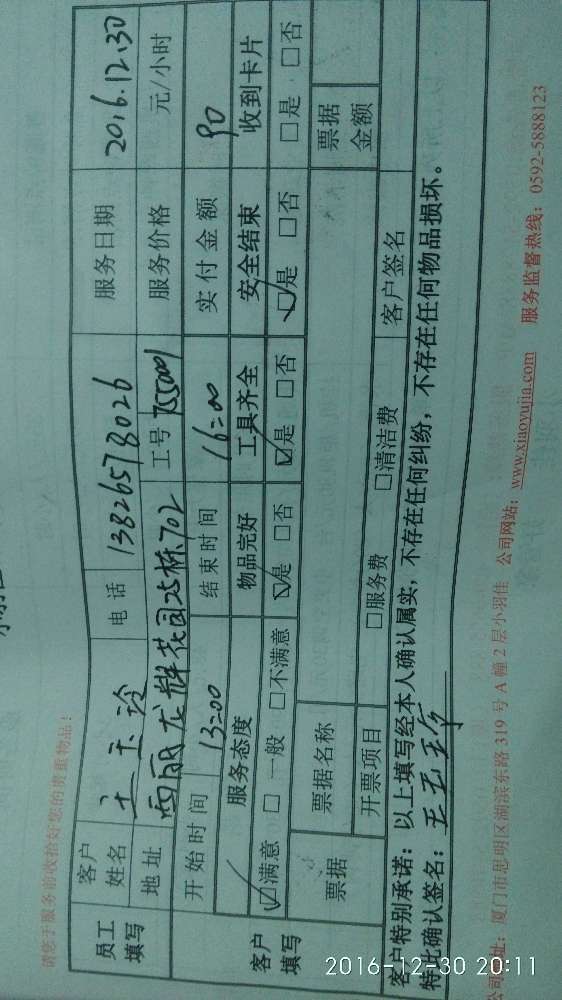 请您于服务前收拾好您的贵重物品！
员工填写 客户姓名 王玉玲 电话 13826578026 服务日期 2016.12.30
地址 西丽龙辉花园25栋702 工号 服务价格 元/小时
客户填写 开始时间 13:00 结束时间 16:00 实付金额 90
服务态度 物品完好 工具齐全 安全结束 收到卡片
☑满意 □一般 □不满意 ☑是 □否 ☑是 □否 ☑是 □否 □是 □否
票据 票据名称 票据金额
开票项目 □服务费 □清洁费 客户签名
客户特别承诺：以上填写经本人确认属实，不存在任何纠纷，不存在任何物品损坏。
特此确认签名：王玉玲
公司地址：厦门市思明区湖滨东路319号A幢2层小羽佳 公司网站：www.xiaoyujia.com 服务监督热线：0592-5888123
2016-12-30 20:11